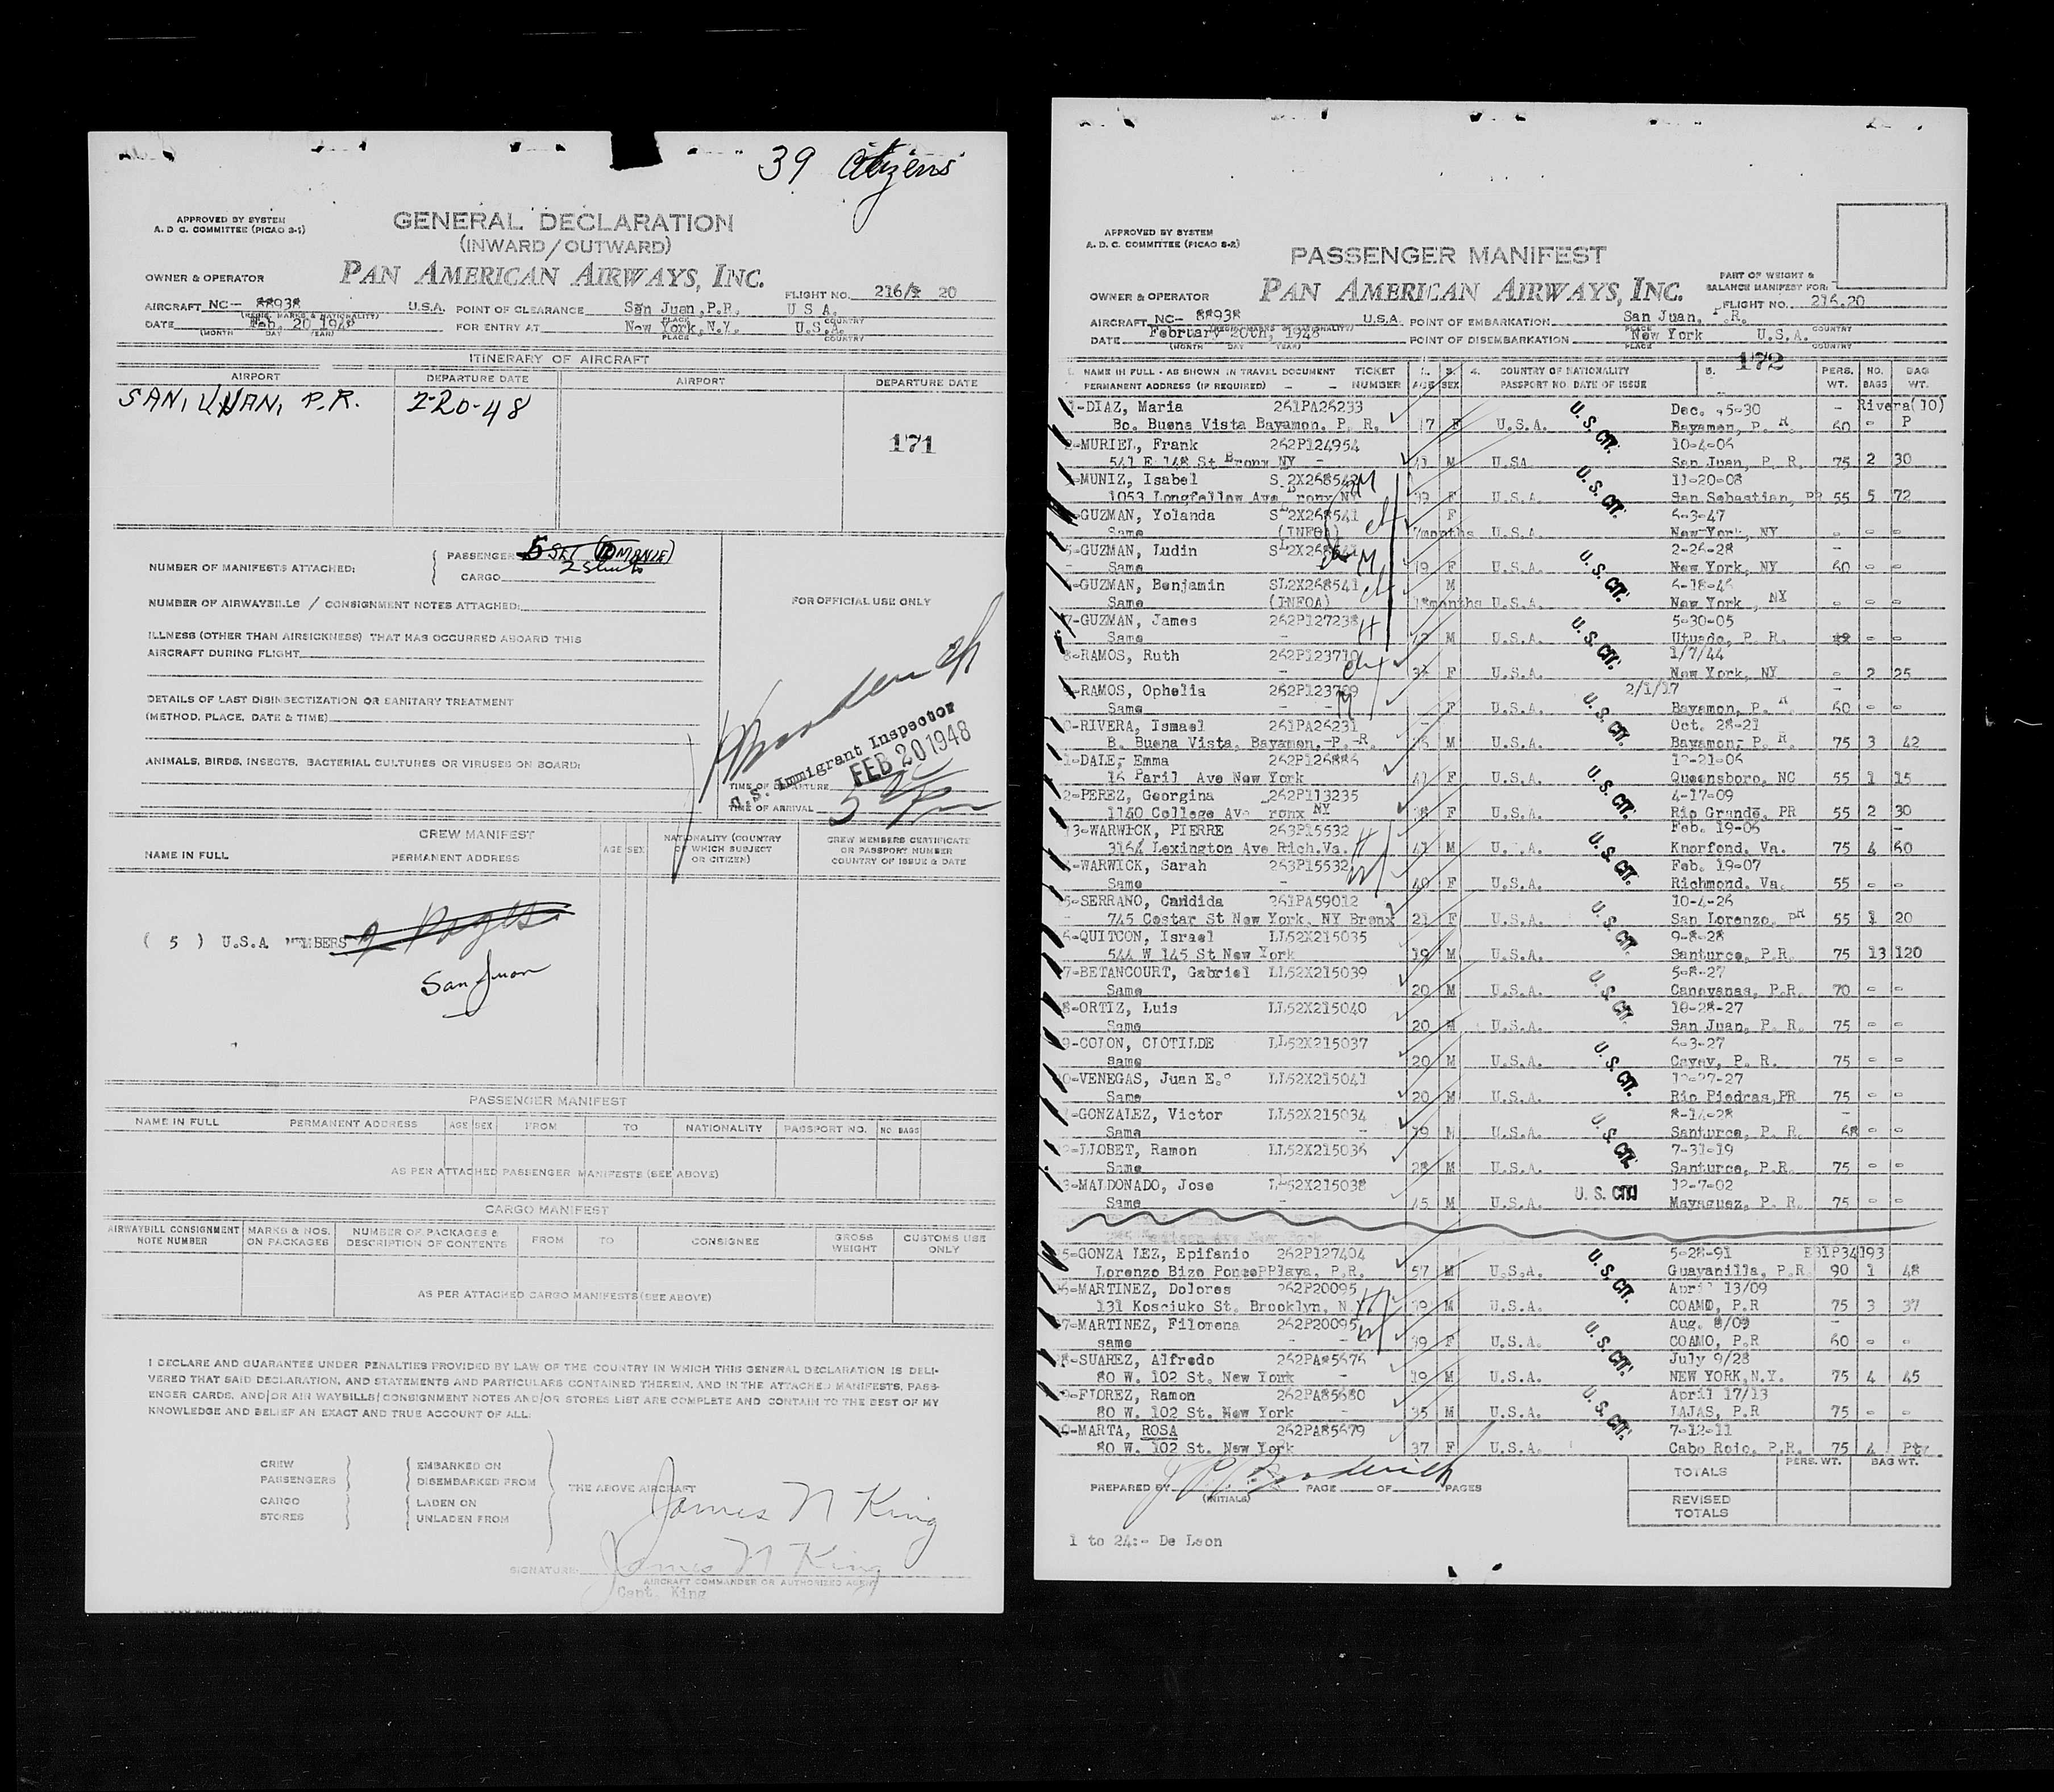 39 Citizens
APPROVED BY SYSTEM
A. D C. COMMITTEE (PICAO 3-1)
GENERAL DECLARATION
(INWARD/OUTWARD)
OWNER & OPERATOR
PAN AMERICAN AIRWAYS, INC.
FLIGHT NO. 216/ 20
AIRCRAFT NC- 88938 U.S.A. POINT OF CLEARANCE San Juan,P.R. U S A.
(REGIS. MARKS & NATIONALITY) PLACE COUNTRY
DATE Feb. 20 1948 FOR ENTRY AT New York,N.Y. U.S.A.
(MONTH DAY YEAR) PLACE COUNTRY
ITINERARY OF AIRCRAFT
AIRPORT DEPARTURE DATE AIRPORT DEPARTURE DATE
SAN JUAN, P.R. 2-20-48
171
NUMBER OF MANIFESTS ATTACHED:
PASSENGER
CARGO
NUMBER OF AIRWAYBILLS / CONSIGNMENT NOTES ATTACHED:
FOR OFFICIAL USE ONLY
ILLNESS (OTHER THAN AIRSICKNESS) THAT HAS OCCURRED ABOARD THIS
AIRCRAFT DURING FLIGHT
DETAILS OF LAST DISINSECTIZATION OR SANITARY TREATMENT
(METHOD, PLACE, DATE & TIME)
ANIMALS, BIRDS, INSECTS, BACTERIAL CULTURES OR VIRUSES ON BOARD:
U.S. Immigrant Inspector
FEB 20 1948
TIME OF DEPARTURE
TIME OF ARRIVAL
CREW MANIFEST
NAME IN FULL PERMANENT ADDRESS AGE SEX
NATIONALITY (COUNTRY OF WHICH SUBJECT OR CITIZEN)
CREW MEMBERS CERTIFICATE OR PASSPORT NUMBER COUNTRY OF ISSUE & DATE
( 5 ) U.S.A. MEMBERS 2 Pages
San Juan
PASSENGER MANIFEST
NAME IN FULL PERMANENT ADDRESS AGE SEX FROM TO NATIONALITY PASSPORT NO. NO. BAGS
AS PER ATTACHED PASSENGER MANIFESTS (SEE ABOVE)
CARGO MANIFEST
AIRWAYBILL CONSIGNMENT NOTE NUMBER MARKS & NOS. ON PACKAGES NUMBER OF PACKAGES & DESCRIPTION OF CONTENTS FROM TO CONSIGNEE GROSS WEIGHT CUSTOMS USE ONLY
AS PER ATTACHED CARGO MANIFESTS (SEE ABOVE)
I DECLARE AND GUARANTEE UNDER PENALTIES PROVIDED BY LAW OF THE COUNTRY IN WHICH THIS GENERAL DECLARATION IS DELI-
VERED THAT SAID DECLARATION, AND STATEMENTS AND PARTICULARS CONTAINED THEREIN, AND IN THE ATTACHED MANIFESTS, PASS-
ENGER CARDS, AND/OR AIR WAYBILLS/CONSIGNMENT NOTES AND/OR STORES LIST ARE COMPLETE AND CONTAIN TO THE BEST OF MY
KNOWLEDGE AND BELIEF AN EXACT AND TRUE ACCOUNT OF ALL:
CREW EMBARKED ON
PASSENGERS DISEMBARKED FROM
THE ABOVE AIRCRAFT
CARGO LADEN ON
STORES UNLADEN FROM
James N King
James N King
SIGNATURE:
AIRCRAFT COMMANDER OR AUTHORISED AGENT
Capt. King
APPROVED BY SYSTEM
A. D. C. COMMITTEE (PICAO 3-2)
PASSENGER MANIFEST
PART OF WEIGHT & BALANCE MANIFEST FOR:
OWNER & OPERATOR
PAN AMERICAN AIRWAYS, INC.
FLIGHT NO. 216.20
AIRCRAFT NC- 88938 U.S.A. POINT OF EMBARKATION San Juan, P.R.
DATE February 20th, 1948 POINT OF DISEMBARKATION New York U.S.A.
(MONTH DAY YEAR) PLACE COUNTRY
172
NAME IN FULL - AS SHOWN IN TRAVEL DOCUMENT TICKET COUNTRY OF NATIONALITY PERS. NO. BAG
PERMANENT ADDRESS (IF REQUIRED) - - NUMBER AGE SEX PASSPORT NO. DATE OF ISSUE WT. BAGS WT.
1-DIAZ, Maria 261PA26233 Dec. 5-30 - Rivera(10)
Bo. Buena Vista Bayamon. P. R. 17 F U.S.A. U. S. CIT. Bayamon, P. R. 60 - P
2-MURIEL, Frank 262P124954 10-4-06
541 E 148 St Bronx NY - 41 M U.SA San Juan, P. R. 75 2 30
-MUNIZ, Isabel 11-20-08
1053 Longfellow Ave Bronx NY 39 F U.S.A. U. S. CIT. San Sebastian, PR 55 5 72
-GUZMAN, Yolanda SL2X268541 F 6-3-47
Same (INFOA) months U.S.A. New York, NY - -
5-GUZMAN, Ludin 2-26-28
Same 19 F U.S.A. U. S. CIT. New York, NY 60 - -
-GUZMAN, Benjamin SL2X268541 M 6-18-46
Same (INFOA) months U.S.A. New York , NY - - -
7-GUZMAN, James 262P127238 5-30-05
Same 42 M U.S.A. U. S. CIT. Utuado, P. R. - -
8-RAMOS, Ruth 262P123710 1/7/44
F U.S.A. New York, NY - 2 25
-RAMOS, Ophelia 2/1/17
Same F U.S.A. U. S. CIT. Bayamon, P. R. 60 - -
0-RIVERA, Ismael 261PA26231 Oct. 28-21
B. Buena Vista, Bayamon, P. R. 26 M U.S.A. Bayamon, P. R. 75 3 42
1-DALE, Emma 262P126886 12-21-06
16 Paril Ave New York 41 F U.S.A. U. S. CIT. Queensboro, NC 55 1 15
2-PEREZ, Georgina 262P113235 4-17-09
1140 College Ave ronx NY 38 F U.S.A. Rio Grande, PR 55 2 30
13-WARWICK, PIERRE 263P15532 Feb. 19-06
3164 Lexington Ave Rich.Va. 41 M U. .A. U. S. CIT. Knorfond, Va. 75 4 60
-WARWICK, Sarah 263P15532 Feb. 19-07
Same 40 F U.S.A. Richmond. Va. 55 - -
5-SERRANO, Candida 261PA59012 10-4-26
745 Costar St New York, NY Bronx 21 F U.S.A. U. S. CIT. San Lorenzo, PR 55 1 20
6-QUITCON, Israel LL52X215035 9-8-28
544 W 145 St New York 19 M U.S.A. Santurce, P.R. 75 13 120
7-BETANCOURT, Gabriel LL52X215039 5-8-27
Same 20 M U.S.A. U. S. CIT. Canovanas, P.R. 70 - -
8-ORTIZ, Luis LL52X215040 10-28-27
Same 20 M U.S.A. San Juan, P. R. 75 - -
9-COLON, CLOTILDE LL52X215037 6-3-27
Same 20 M U.S.A. U. S. CIT. Cayey, P. R. 75 - -
0-VENEGAS, Juan E. LL52X215041 12-27-27
Same 20 M U.S.A. Rio Piedras,PR 75 - -
-GONZALEZ, Victor LL52X215034 8-14-28
Same 19 M U.S.A. U. S. CIT. Santurce, P. R. 68 - -
-LLOBET, Ramon LL52X215036 7-31-19
Same 28 M U.S.A. Santurce, P.R. 75 - -
3-MALDONADO, Jose LL52X215038 12-7-02
Same 45 M U.S.A. U. S. CIT. Mayaguez, P. R. 75 - -
5-GONZA LEZ, Epifanio 262P127404 5-28-91 E31P34193
Lorenzo Bizo PoncePPlaya, P.R. 57 M U.S.A. U. S. CIT. Guayanilla, P.R. 90 1 48
6-MARTINEZ, Dolores 262P20095 April 13/09
131 Kosciuko St. Brooklyn, N. 39 M U.S.A. COAMO, P.R 75 3 37
7-MARTINEZ, Filomena 262P20095 Aug. 8/09
same 39 F U.S.A. U. S. CIT. COAMO, P.R 60 - -
8-SUAREZ, Alfredo 262PA85676 July 9/28
80 W. 102 St. New York - 19 M U.S.A. NEW YORK,N.Y. 75 4 45
9-FLOREZ, Ramon 262PA85680 April 17/13
80 W. 102 St. New York - 35 M U.S.A. U. S. CIT. LAJAS, P.R 75 - -
0-MARTA, ROSA 262PA85679 7-12-11
80 W. 102 St. New York 37 F U.S.A. Cabo Rojo, P.R. 75 4
PREPARED BY (INITIALS) PAGE OF PAGES
TOTALS PERS. WT. BAG WT.
REVISED TOTALS
1 to 24:- De Leon